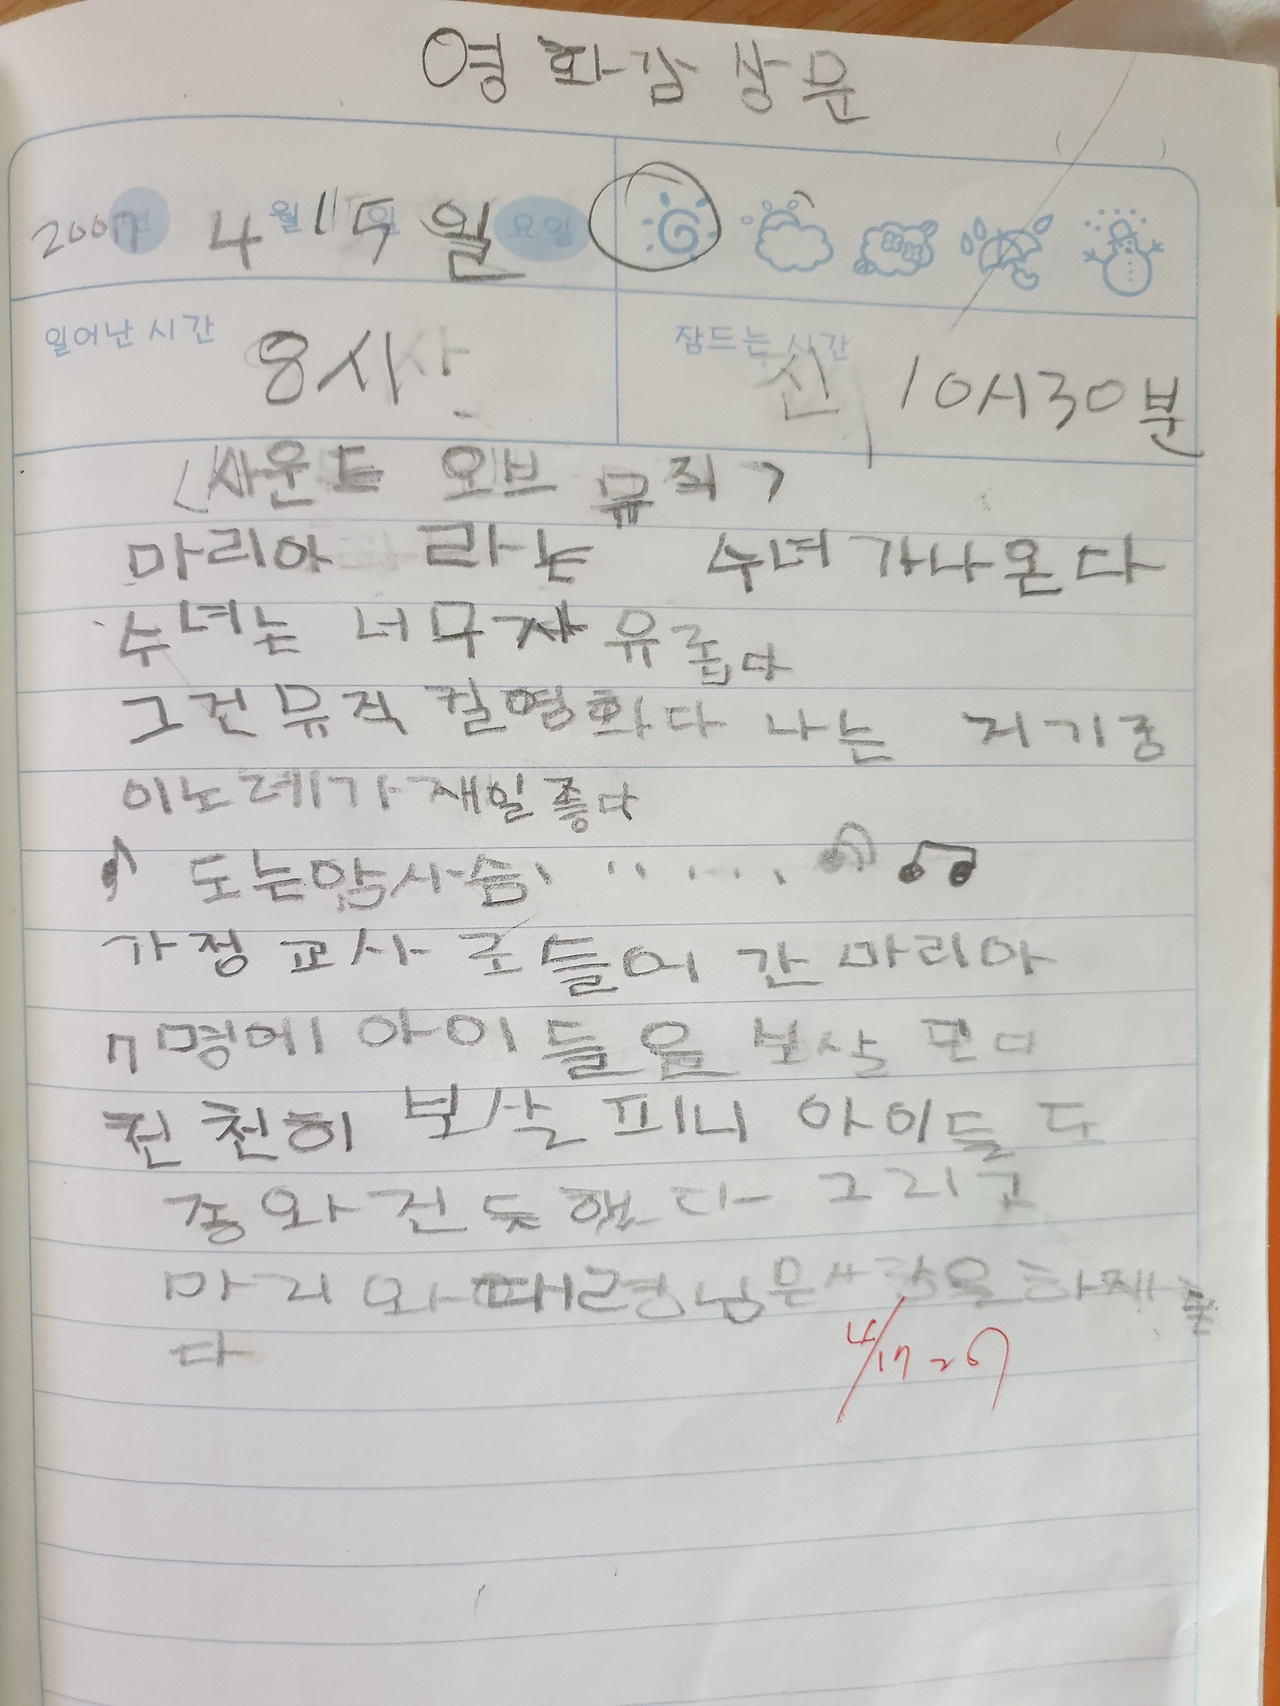 영화감상문
2007년 4월 15일 일요일
일어난 시간 8시
잠드는 시간 10시30분
<싸운드 오브 뮤직>
마리아 라는 수녀가나온다
수녀는 너무자유롭다
그건뮤직컬영화다 나는 거기중
이노레가재일좋다
도는암사슴......
가정교사로들어간마리아
7명에아이들을보살핀다
천천히 보살피니 아이들도
중와건듯했다 그리고
마리와때령님은사랑을하재
다
4/17 -07